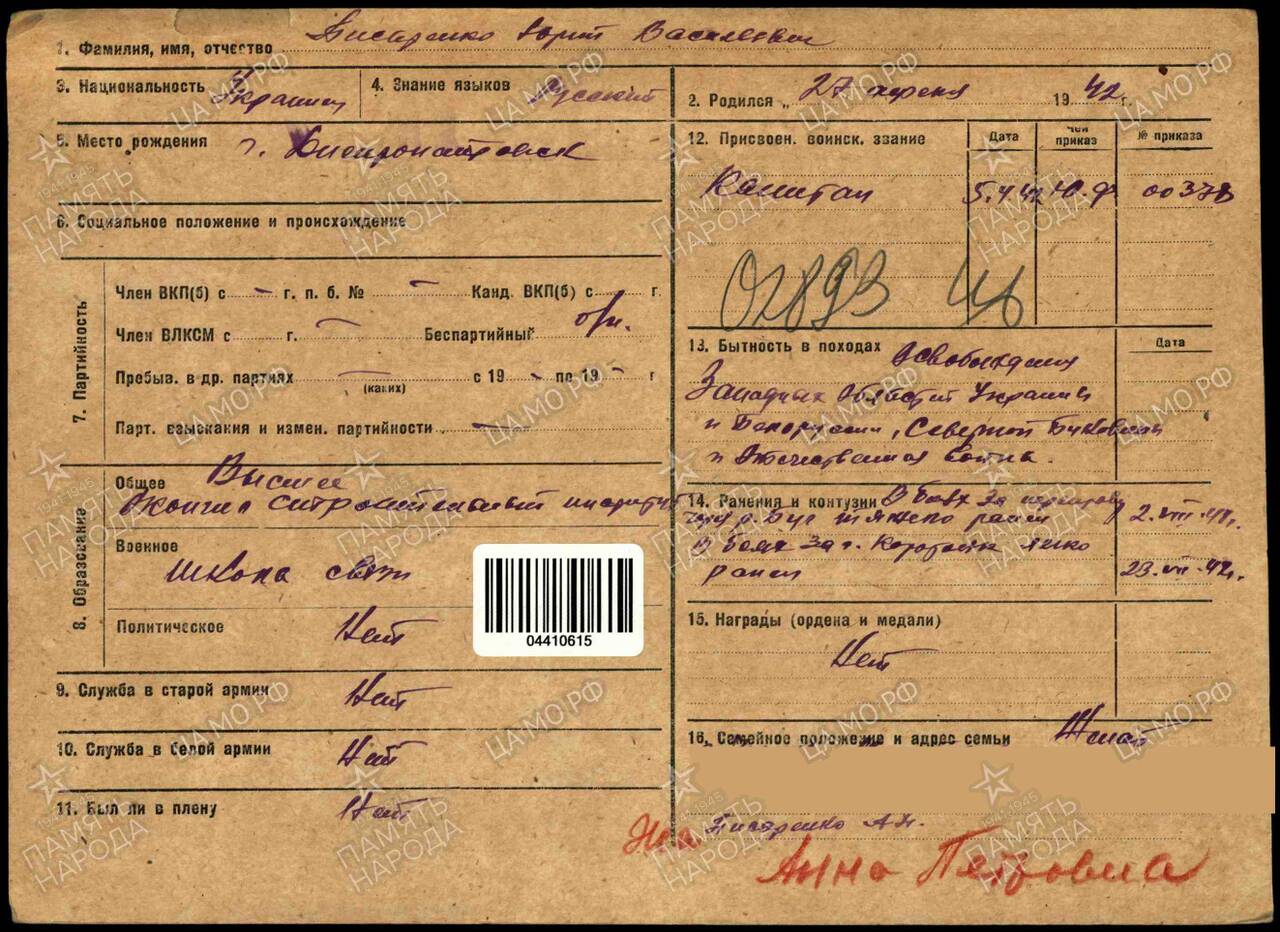 1. Фамилия, имя, отчество Писаренко Юрий Васильевич
3. Национальность Украинец
4. Знание языков Русский
2. Родился „ 27 апреля 1942 г.
5. Место рождения г. Днепропетровск
12. Присвоен. воинск. звание
Дата
Чей приказ
№ приказа
Капитан 5.4.42 Ю.Ф 00378
02893 46
6. Социальное положение и происхождение
7. Партийность
Член ВКП(б) с - г. п. б. № - Канд. ВКП(б) с г.
Член ВЛКСМ с - г. Беспартийный б/п.
Пребыв. в др. партиях - с 19 - по 19 - г
(каких)
Парт. взыскания и измен. партийности -
13. Бытность в походах Освобождения
Дата
Западных областей Украины
и Белоруссии, Северной Буковины
и Отечественная война.
8. Образование
Общее Высшее
Окончил строительный институт
Военное
Школа связи
Политическое Нет
14. Ранения и контузии В боях за переправу
р. Буг тяжело ранен 2.VIII.41г.
В боях за г. Коротояк легко
ранен 23.VII.42г.
04410615
15. Награды (ордена и медали)
Нет
9. Служба в старой армии Нет
10. Служба в белой армии Нет
11. Был ли в плену Нет
16. Семейное положение и адрес семьи Женат
Жена Писаренко А.П.
Анна Петровна
ЦАМО.РФ
1941-1945
ПАМЯТЬ
НАРОДА